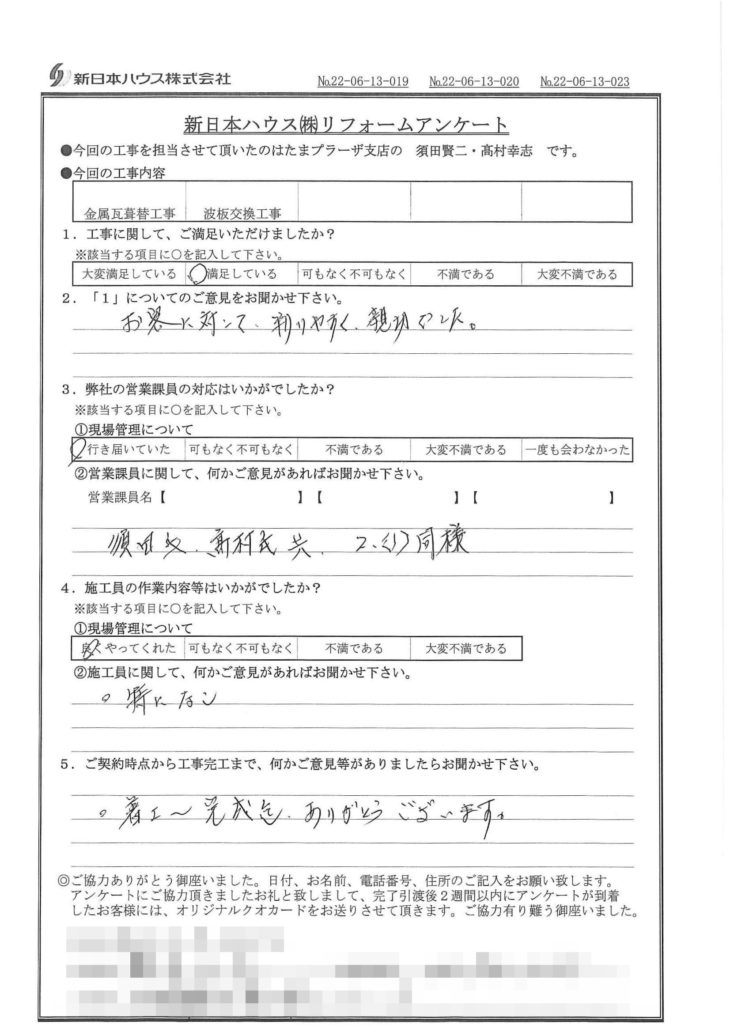 新日本ハウス株式会社 №22-06-13-019 №22-06-13-020 №22-06-13-023
新日本ハウス㈱リフォームアンケート
●今回の工事を担当させて頂いたのはたまプラーザ支店の 須田賢二・髙村幸志 です。
●今回の工事内容
金属瓦葺替工事 波板交換工事
1．工事に関して、ご満足いただけましたか？
※該当する項目に○を記入して下さい。
大変満足している 満足している 可もなく不可もなく 不満である 大変不満である
2．「1」についてのご意見をお聞かせ下さい。
お客に対して、判りやすく、親切でした。
3．弊社の営業課員の対応はいかがでしたか？
※該当する項目に○を記入して下さい。
①現場管理について
行き届いていた 可もなく不可もなく 不満である 大変不満である 一度も会わなかった
②営業課員に関して、何かご意見があればお聞かせ下さい。
営業課員名【 】【 】【 】
須田氏、髙村氏共、2、と同様
4．施工員の作業内容等はいかがでしたか？
※該当する項目に○を記入して下さい。
①現場管理について
良くやってくれた 可もなく不可もなく 不満である 大変不満である
②施工員に関して、何かご意見があればお聞かせ下さい。
○特になし
5．ご契約時点から工事完工まで、何かご意見等がありましたらお聞かせ下さい。
○着工～完成迄、ありがとうございます。
◎ご協力ありがとう御座いました。日付、お名前、電話番号、住所のご記入をお願い致します。
アンケートにご協力頂きましたお礼と致しまして、完了引渡後2週間以内にアンケートが到着
したお客様には、オリジナルクオカードをお送りさせて頂きます。ご協力有り難う御座いました。